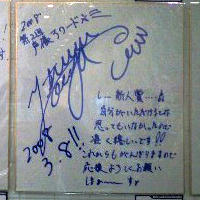 2008
第2回
声優アワード
新人賞…
自分がいただけるなんて
思ってもいなかったので
凄く嬉しいです!!
これからもがんばりますので
応援よろしくお願い
します
2008
3.8!!